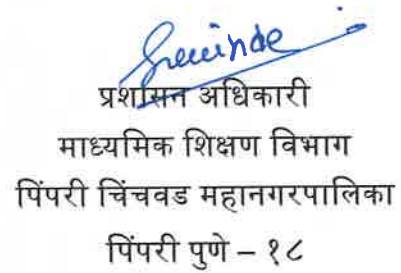 प्रशासन अधिकारी
माध्यमिक शिक्षण विभाग
पिंपरी चिंचवड महानगरपालिका
पिंपरी पुणे – १८